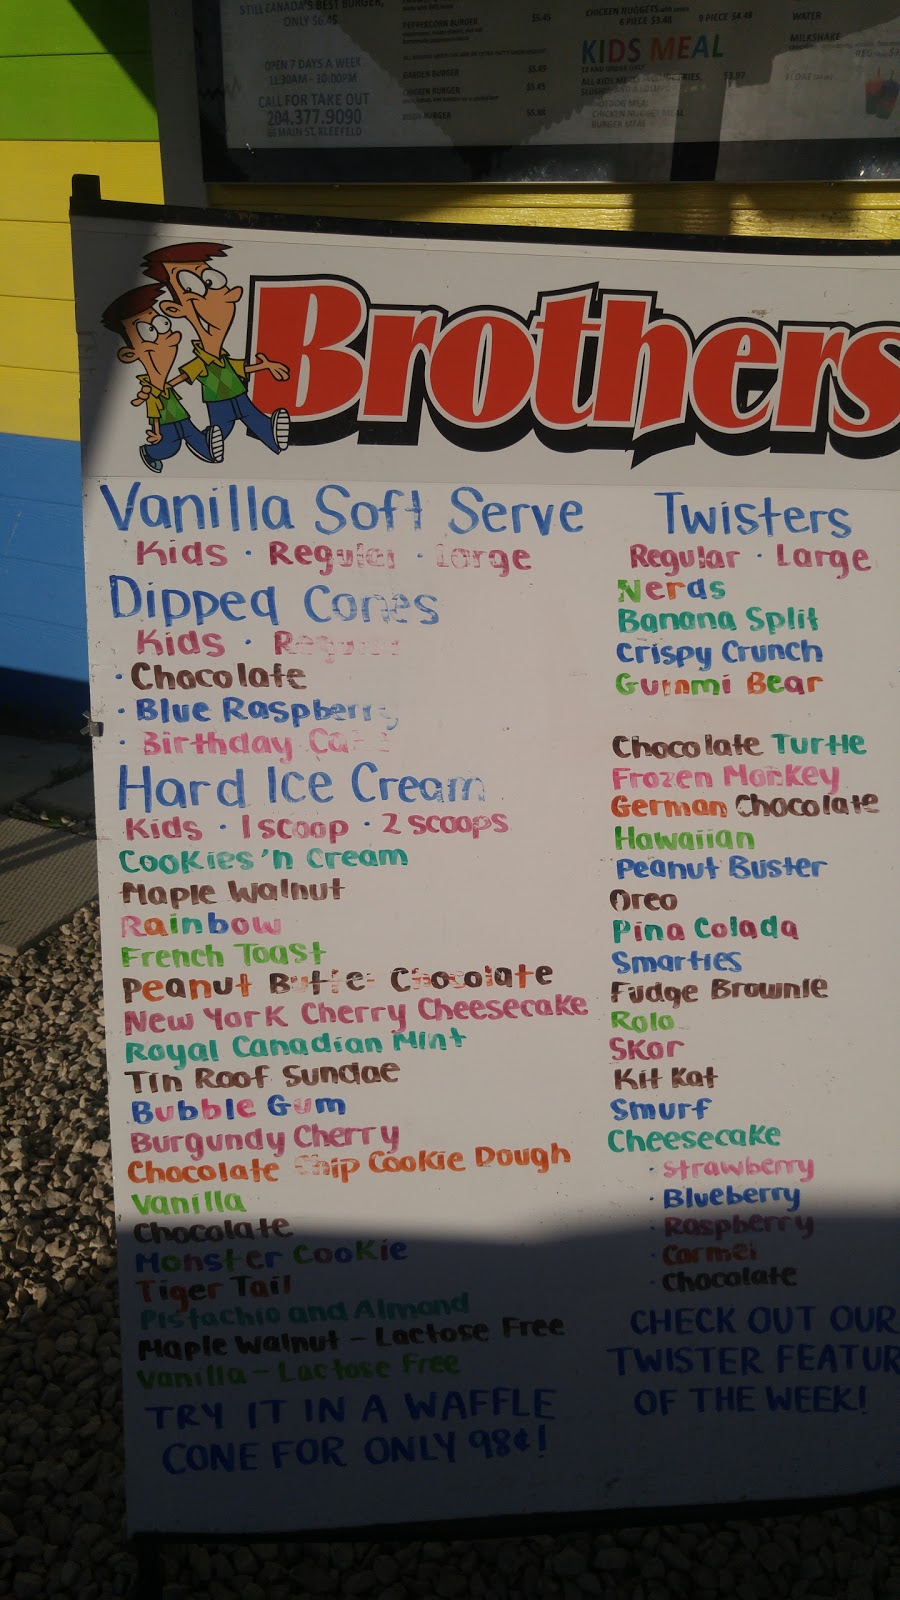 STILL CANADA'S BEST BURGER,
ONLY $6.45
OPEN 7 DAYS A WEEK
11:30AM - 10:00PM
CALL FOR TAKE OUT
204.377.9090
MAIN ST, KLEEFELD
PEPPERCORN BURGER $5.45
GARDEN BURGER $5.45
CHICKEN BURGER $5.45
BURGER
CHICKEN NUGGETS
6 PIECE $3.48 9 PIECE $4.48
KIDS MEAL
HOTDOG MEAL
CHICKEN NUGGET MEAL
BURGER MEAL
WATER
MILKSHAKE
Brothers
Vanilla Soft Serve
Kids · Regular · Large
Dipped Cones
Kids · Regular
· Chocolate
· Blue Raspberry
· Birthday Cake
Hard Ice Cream
Kids · 1 scoop · 2 scoops
Cookies 'n Cream
Maple Walnut
Rainbow
French Toast
Peanut Butter Chocolate
New York Cherry Cheesecake
Royal Canadian Mint
Tin Roof Sundae
Bubble Gum
Burgundy Cherry
Chocolate Chip Cookie Dough
Vanilla
Chocolate
Monster Cookie
Tiger Tail
Pistachio and Almond
Maple Walnut - Lactose Free
Vanilla - Lactose Free
TRY IT IN A WAFFLE
CONE FOR ONLY 98¢!
Twisters
Regular · Large
Nerds
Banana Split
Crispy Crunch
Gummi Bear
Chocolate Turtle
Frozen Monkey
German Chocolate
Hawaiian
Peanut Buster
Oreo
Pina Colada
Smarties
Fudge Brownie
Rolo
Skor
Kit Kat
Smurf
Cheesecake
· Strawberry
· Blueberry
· Raspberry
· Carmel
· Chocolate
CHECK OUT OUR
TWISTER FEATUR
OF THE WEEK!